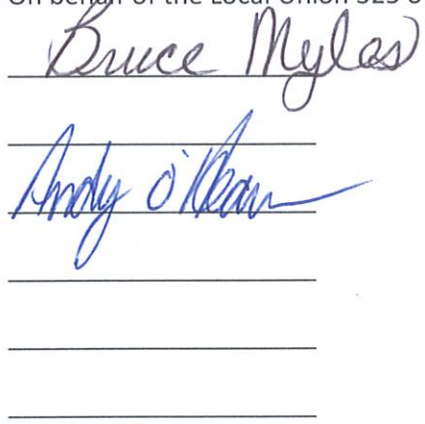 On behalf of the Local Union 525 o
Bruce Myles
Andy O'